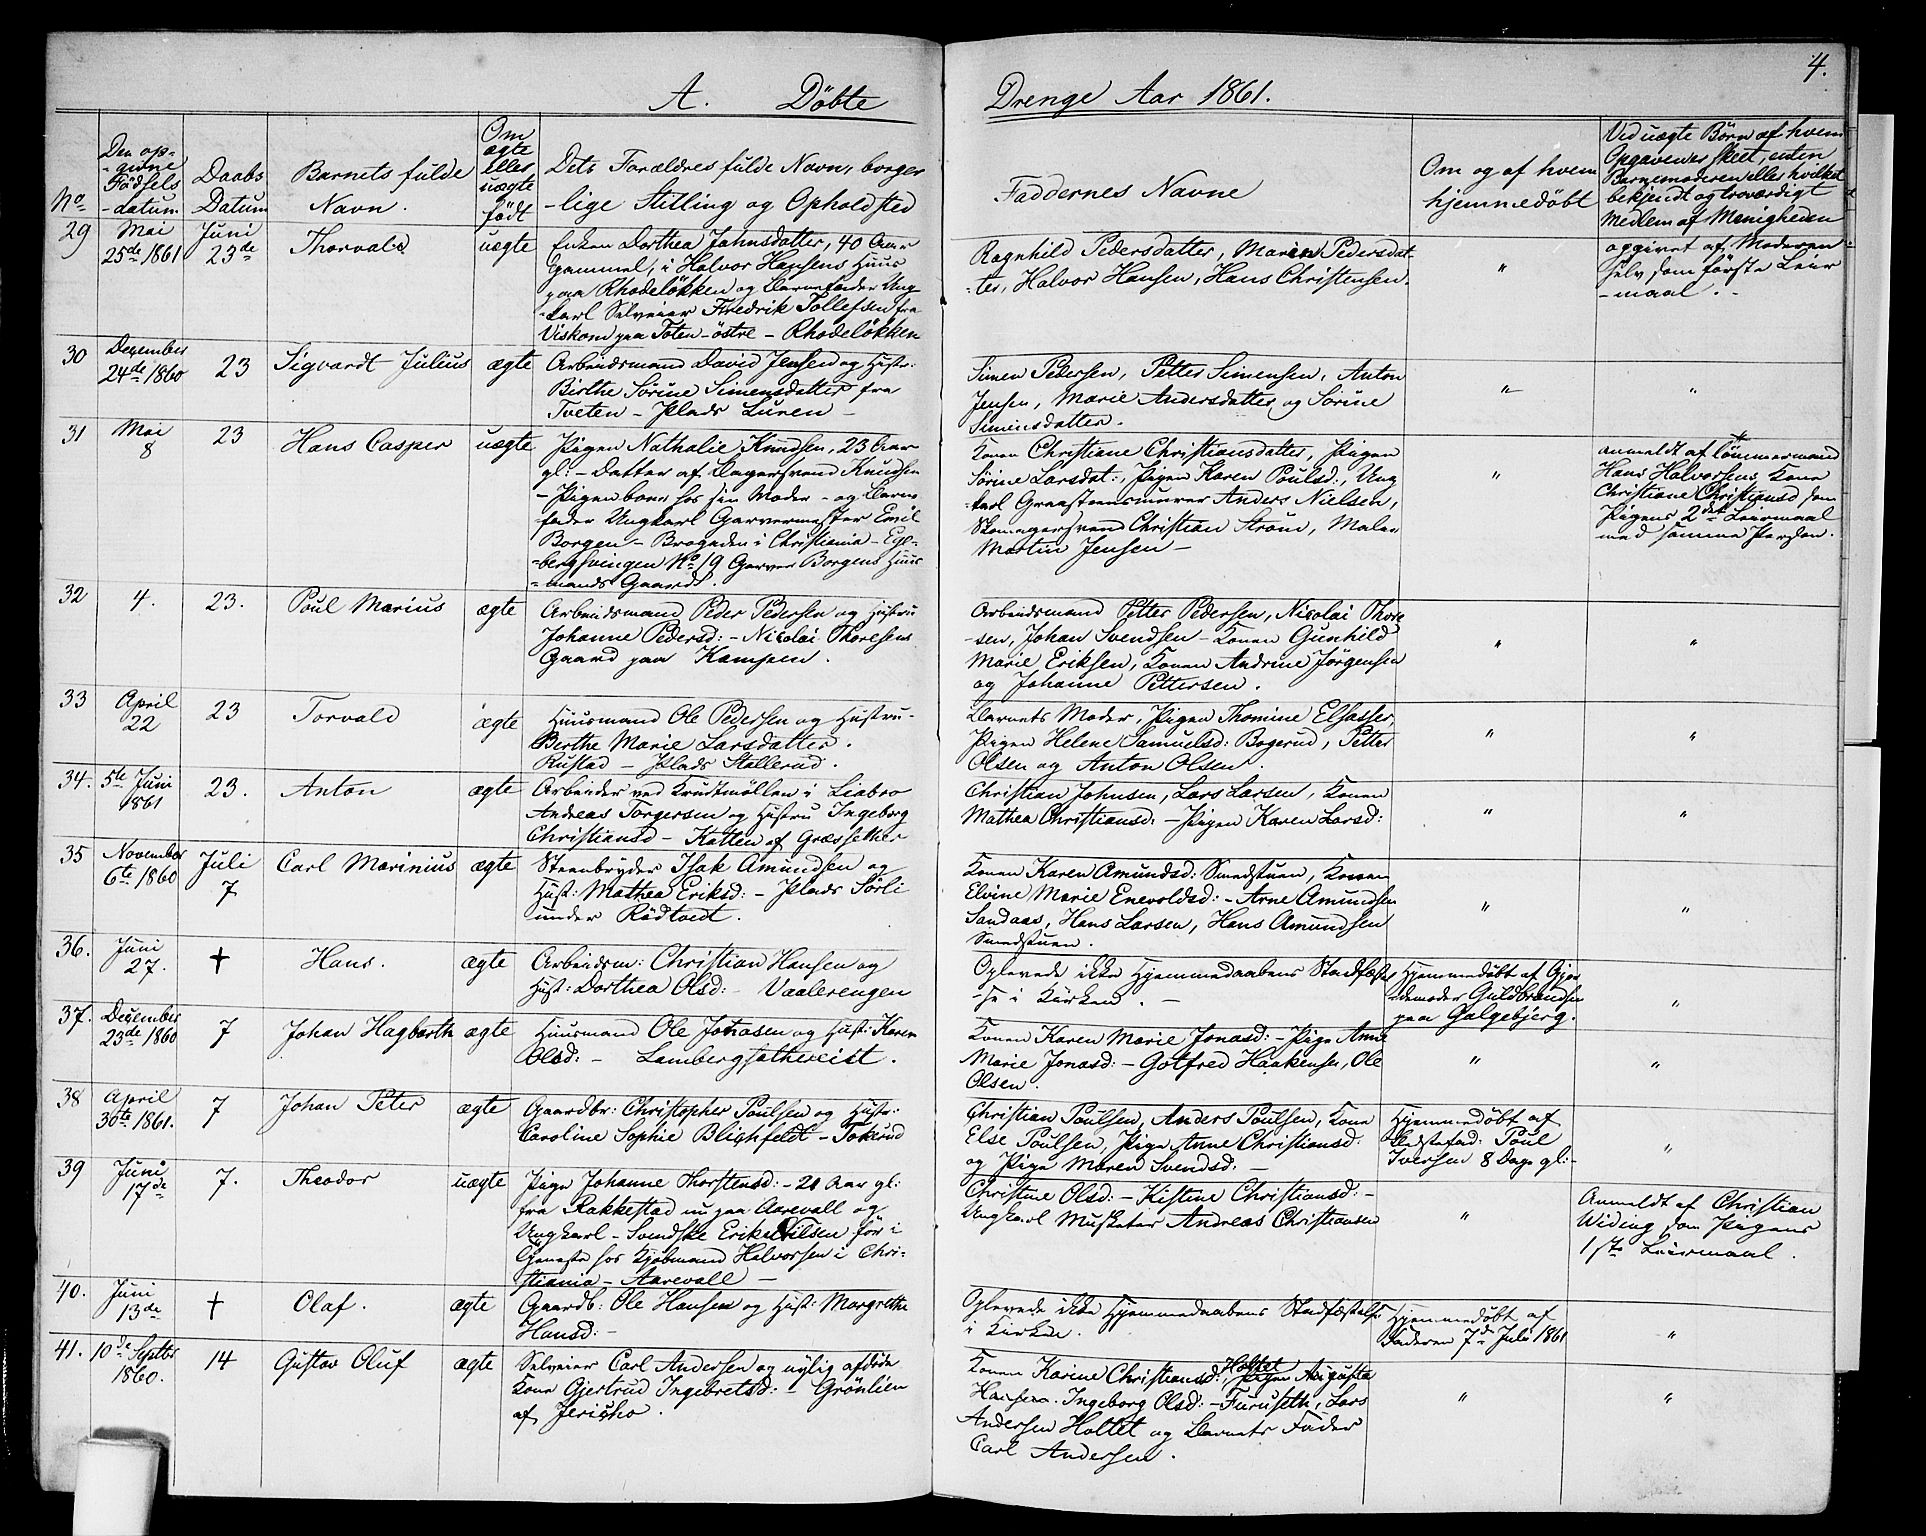 4.
A. Döbte Drenge Aar 1861.
No.
Den op-
-givne
Födsels
-datum
Daabs
Datum
Barnets fulde
Navn.
Om
ægte
eller
uægte
födt
Dets Forældres fulde Navn, borger
-lige Stilling og Opholdsted
Faddernes Navne
Om og af hvem
hjemmedöbt
Ved uægte Börn af hvem
Opgaven er skeet, enten
Barnemoderen eller hvilket
bekjendt og troværdigt
Medlem af Menigheden
29
Mai
25de 1861
Juni
23de
Thorvald
uægte
Enken Dorthea Johnsdatter, 40 Aar
Gammel, i Halvor Hansens Huus
paa Rhodelökken og Barnefader Ung-
-karl Selveier Fredrik Tollefsen fra
Viskom paa Toten - östre - Rhodelökken
Ragnhild Pedersdatter, Maren Pedersdat-
-ter, Halvor Hansen, Hans Christensen.
"
opgivet af Moderen
selv som förste Leier
-maal.
30
Dezember
24de 1860
23
Sigvardt Julius
ægte
Arbeidsmand David Jensen og Hustr:
Birthe Sörine Simensdatter fra
Tveten - Plads Luren -
Simen Pedersen, Petter Simensen, Anton
Jensen, Marie Andersdatter og Sörine
Simensdatter.
"
"
31
Mai
8
23
Hans Casper
uægte
Pigen Nathalie Knudsen, 23 Aar
gl. - Datter af Bagersvend Knudsen
- Pigen boer hos sin Moder - og Barne
fader Ungkarl Garvermester Emil
Borgen - Brogaden i Christiania - Ege-
-bergsvingen No 19 Garver Borgens Huus
-mands Gaard.
Konen Christiane Christiansdatter, Pigen
Sörine Larsdat:, Pigen Karen Poulsd:, Ung
-karl Graasteensmurer Anders Nielsen,
Skomagersvend Christian Ström, Maler
Martin Jensen -
"
anmeldt af Tömmermand
Hans Halvorsens Kone
Christiane Christiansd som
Pigens 2det Leiermaal
med samme Person.
32
4.
23.
Poul Marius
ægte
Arbeidsmand Peder Pedersen og Hustru
Johanne Pedersd: - Nicolai Thoresens
Gaard paa Kampen.
Arbeidsmand Petter Pedersen, Nicolai Thore
-sen, Johan Svendsen - Konen Gunhild
Marie Eriksen, Konen Andrine Jörgensen
og Johanne Pettersen.
"
"
33
April
22
23
Torvald
ægte
Huusmand Ole Pedersen og Hustru
Berthe Marie Larsdatter.
Rustad - Plads Stallerud.
Barnets Moder, Pigen Thomine Elsasser,
Pigen Helene Samuelsd: Bogerud, Petter
Olsen og Anton Olsen.
"
"
34.
5te Juni
1861
23.
Anton
ægte
Arbeider ved Krudtmöllen i Liabro
Andreas Torgersen og Hustru Ingeborg
Christiansd - Katten af Græsselker
Christian Johnsen, Lars Larsen, Konen
Mathea Christiansd: - Pigen Karen Larsd:
"
"
35
November
6te 1860
Juli
7
Carl Marinius
ægte
Steenbryder Isak Amundsen og
Hust: Mathea Eriksd: - Plads Sörli
under Rödtvedt.
Konen Karen Amundsd: Smedstuen, Konen
Elvine Marie Enevoldsd: - Arne Amundsen
Sandaas, Hans Larsen, Hans Amundsen
Smedstuen.
"
"
36.
Juni
27.
†
Hans.
ægte
Arbeidsm: Christian Hansen og
Hust: Dorthea Olsd: - Vaalerengen
Oplevede ikke Hjemmedaabens Stadfæstel
-se i Kirken. -
Hjemmedöbt af Gjor
demoder Guldbrandsen
paa Galgebjerg.
"
37.
Dezember
23de 1860
7
Johan Hagbarth
ægte
Huusmand Ole Johnsen og Hust: Karen
Olsd: - Lambergsæthereist.
Konen Karen Marie Jonasd: - Pige Anne
Marie Jonasd: - Gotfred Haakensen, Ole
Olsen.
"
"
38
April
30te 1861.
7
Johan Peter
ægte
Gaardbr: Christopher Poulsen og Hustr:
Caroline Sophie Blighfeldt - Tokerud
Christian Poulsen, Anders Poulsen, Kone
Else Poulsen, Pige Anne Christiansd.
og Pige Maren Svendsd: -
Hjemmedöbt af
Bedstefad: Poul
Iversen 8 Dage gl:-
"
39
Juni
17de
7.
Theodor
uægte
Pige Johanne Thorstensd: - 21 Aar gl:
fra Rakkestad nu paa Aarevall og
Ungkarl - Svendske Erik Nilsen för i
Tjeneste hos Kjöbmand Halvorsen i Chri-
stiania - Aarevall -
Christine Olsd: - Kistine Christiansd: -
Ungkarl Musketer Andreas Christiansen
"
Anmeldt af Christian
Widing som Pigens
1ste Leiermaal.
40.
Juni
13de
†
Olaf.
ægte
Gaardb: Ole Hansen og Hust: Margrethe
Hansd: -
Oplevede ikke Hjemmedaabens Stadfæstelse
i Kirken.
Hjemmedöbt af
Faderen 7de Juli 1861
"
41.
10de Septbr
1860.
14
Gustav Oluf
ægte
Selveier Carl Andersen og nylig afdöde
Kone Gjertrud Ingebretsd: - Grönlien
af Jericho.
Konen Karine Christiansd: Holtet, Pigen Augusta
Hansen. Ingeborg Olsd: - Furuseth, Lars
Andersen Holtet og Barnets Fader
Carl Andersen.
"
"